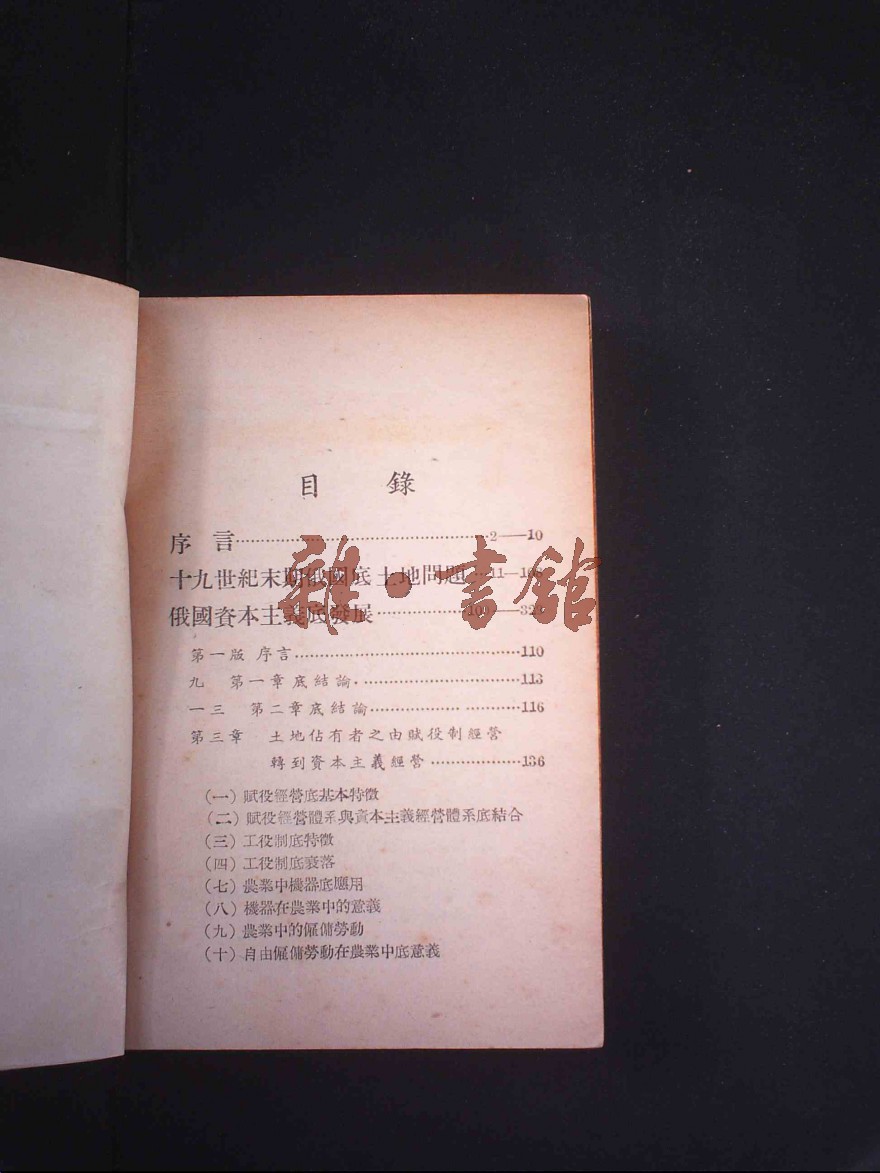 目 錄
序 言……2——10
十九世紀末期俄國底土地問題…11—108
俄國資本主義底發展……109——329
第一版 序言……110
九 第一章底結論……113
一三 第二章底結論……116
第三章 土地佔有者之由賦役制經營
轉到資本主義經營……136
(一)賦役經營底基本特徵
(二)賦役經營體系與資本主義經營體系底結合
(三)工役制底特徵
(四)工役制底衰落
(七)農業中機器底應用
(八)機器在農業中的意義
(九)農業中的僱傭勞動
(十)自由僱傭勞動在農業中底意義
雜·書館